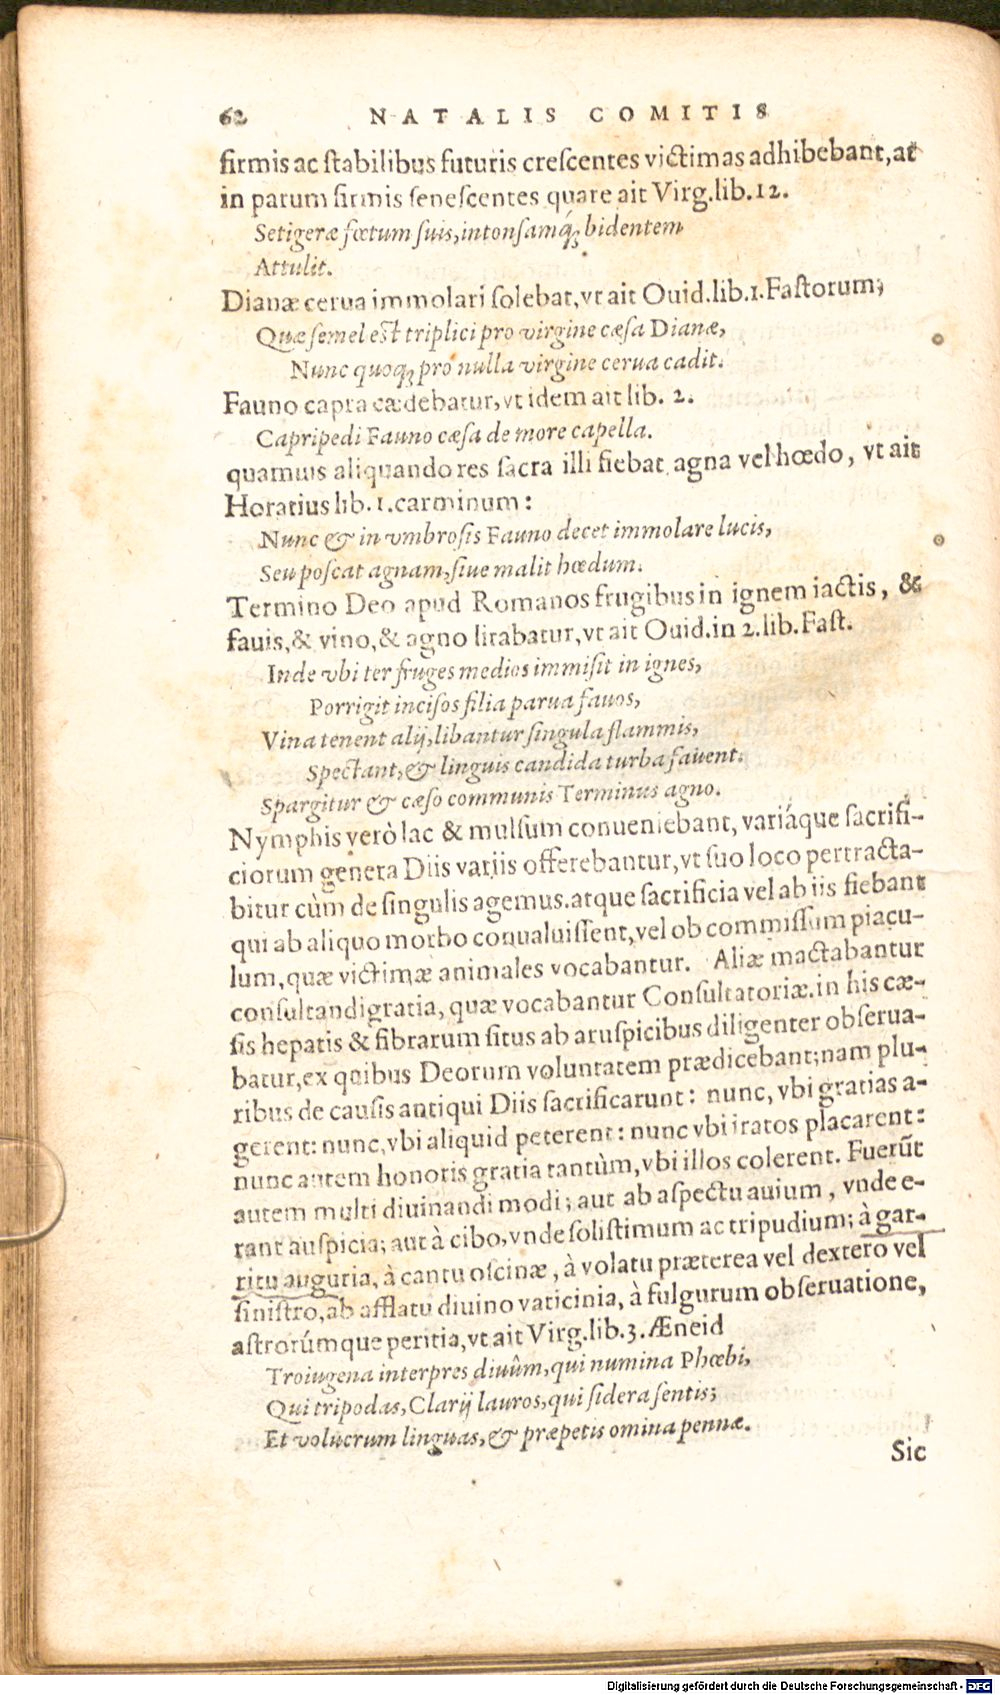 62 NATALIS COMITIS
firmis ac stabilibus futuris crescentes victimas adhibebant, at
in parum firmis senescentes quare ait Virg. lib. 12.
Setigeræ fœtum suis, intonsamq́; bidentem
Attulit.
Dianæ cerua immolari solebat, vt ait Ouid. lib. 1. Fastorum;
Quæ semel est triplici pro virgine cæsa Dianæ,
Nunc quoq; pro nulla virgine cerua cadit.
Fauno capra cædebatur, vt idem ait lib. 2.
Capripedi Fauno cæsa de more capella.
quamuis aliquando res sacra illi fiebat agna vel hœdo, vt ait
Horatius lib. 1. carminum:
Nunc & in vmbrosis Fauno decet immolare lucis,
Seu poscat agnam, siue malit hœdum.
Termino Deo apud Romanos frugibus in ignem iactis, &
fauis, & vino, & agno litabatur, vt ait Ouid. in 2. lib. Fast.
Inde vbi ter fruges medios immisit in ignes,
Porrigit incisos filia parua fauos,
Vina tenent alij, libantur singula flammis,
Spectant, & linguis candida turba fauent.
Spargitur & cæso communis Terminus agno.
Nymphis verò lac & mulsum conueniebant, variáque sacrifi-
ciorum genera Diis variis offerebantur, vt suo loco pertracta-
bitur cùm de singulis agemus. atque sacrificia vel ab iis fiebant
qui ab aliquo morbo conualuissent, vel ob commissum piacu-
lum, quæ victimæ animales vocabantur. Aliæ mactabantur
consultandi gratia, quæ vocabantur Consultatoriæ. in his cæ-
sis hepatis & fibrarum situs ab aruspicibus diligenter obserua-
batur, ex quibus Deorum voluntatem prædicebant; nam plu-
ribus de causis antiqui Diis sacrificarunt: nunc, vbi gratias a-
gerent: nunc, vbi aliquid peterent: nunc vbi iratos placarent:
nunc autem honoris gratia tantùm, vbi illos colerent. Fuerũt
autem multi diuinandi modi; aut ab aspectu auium, vnde e-
rant auspicia; aut à cibo, vnde solistimum ac tripudium; à gar-
ritu auguria, à cantu oscinæ, à volatu præterea vel dextero vel
sinistro, ab afflatu diuino vaticinia, à fulgurum obseruatione,
astrorúmque peritia, vt ait Virg. lib. 3. Æneid
Troiugena interpres diuûm, qui numina Phœbi,
Qui tripodas, Clarij lauros, qui sidera sentis;
Et volucrum linguas, & præpetis omina pennæ.
Sic
Digitalisierung gefördert durch die Deutsche Forschungsgemeinschaft - DFG